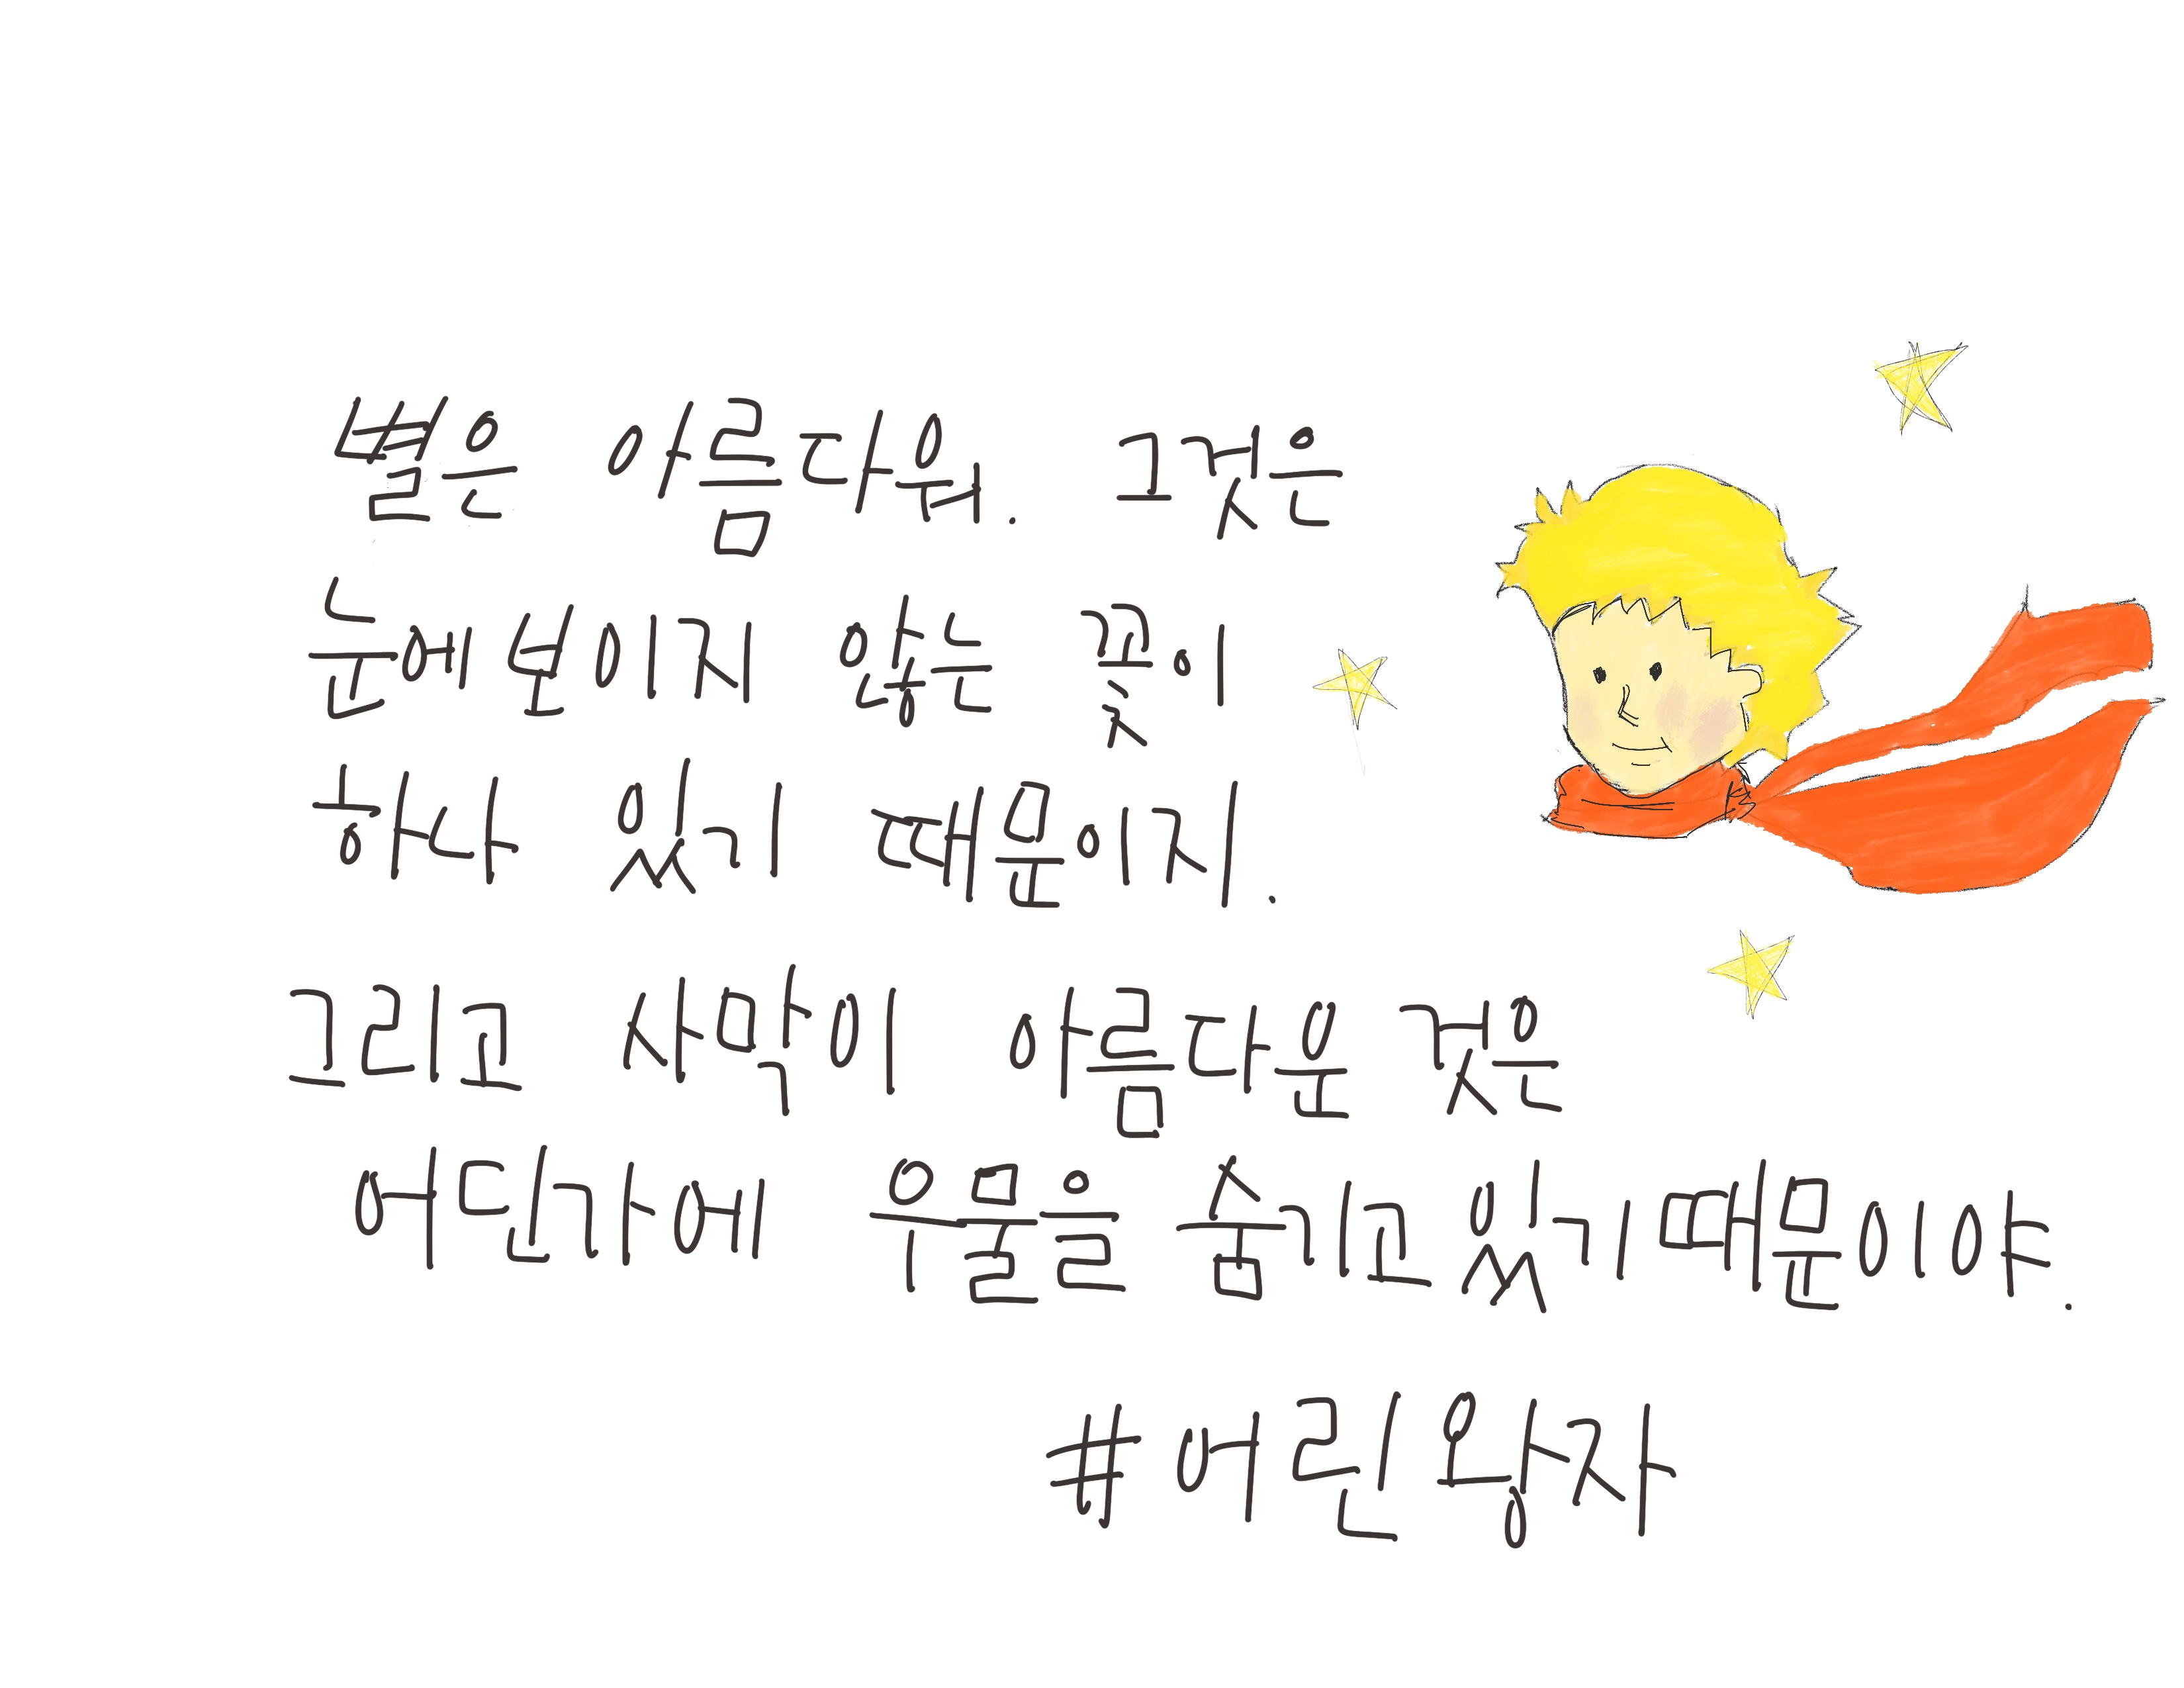 별은 아름다워. 그것은
눈에 보이지 않는 꽃이
하나 있기 때문이지.
그리고 사막이 아름다운 것은
어딘가에 우물을 숨기고 있기 때문이야.
#어린왕자